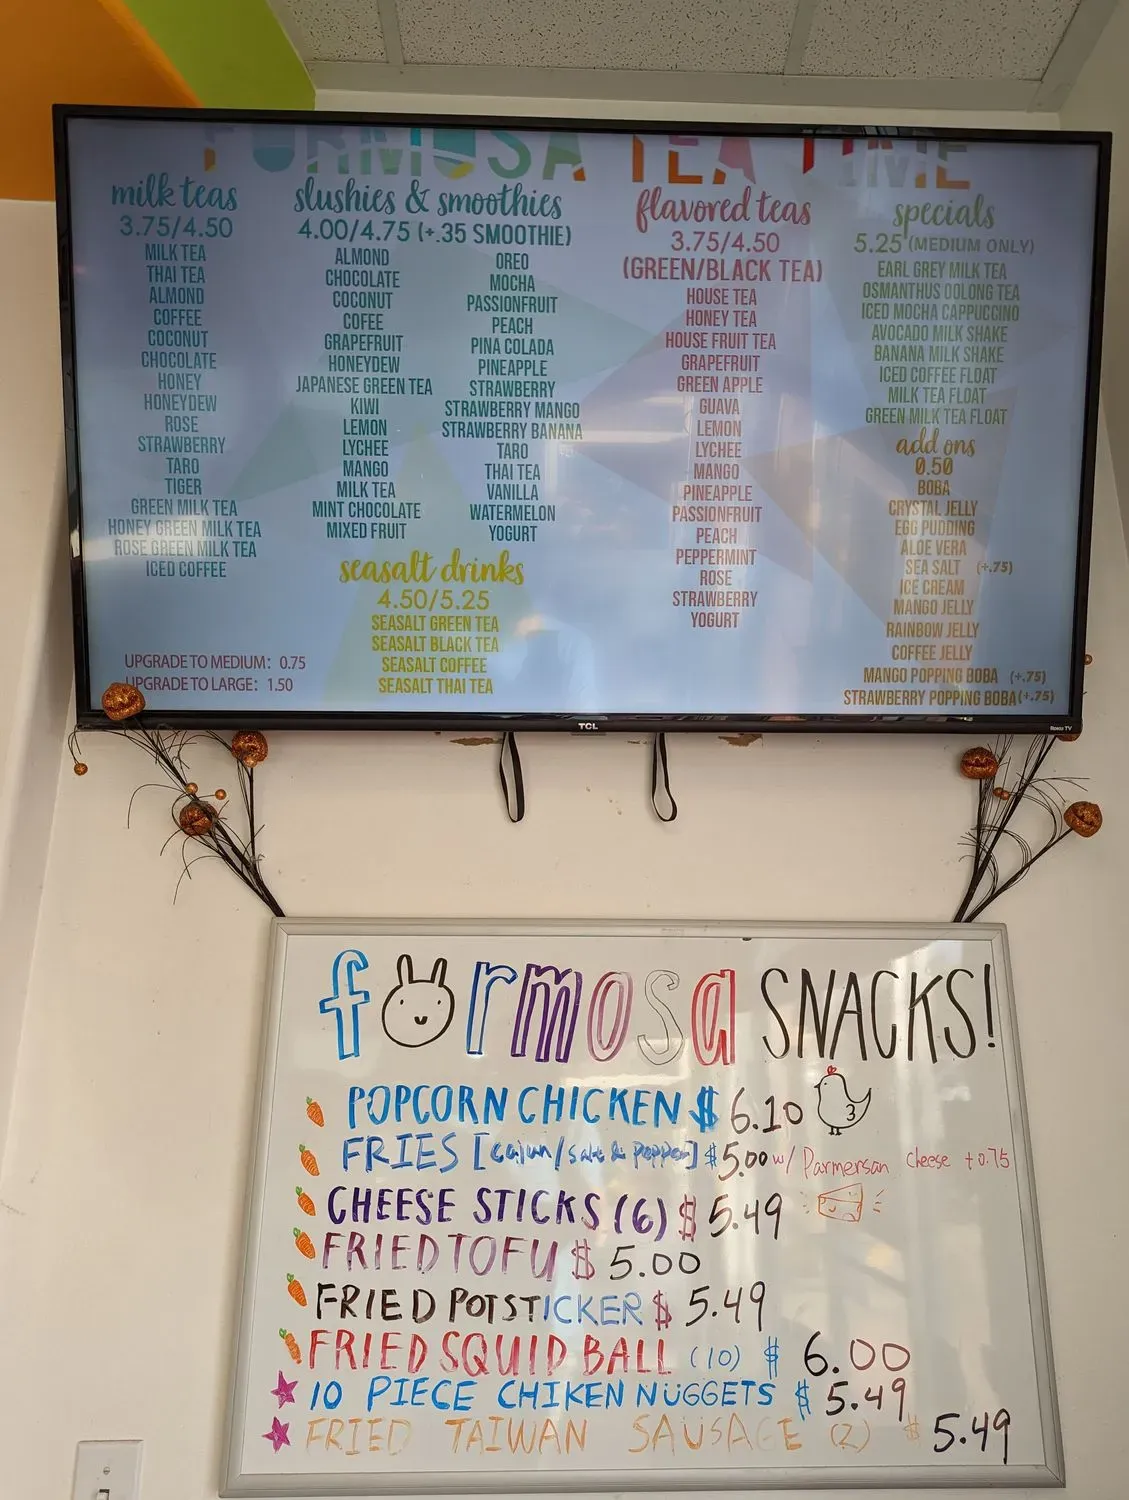 FORMOSA TEA TIME
milk teas
3.75/4.50
MILK TEA
THAI TEA
ALMOND
COFFEE
COCONUT
CHOCOLATE
HONEY
HONEYDEW
ROSE
STRAWBERRY
TARO
TIGER
GREEN MILK TEA
HONEY GREEN MILK TEA
ROSE GREEN MILK TEA
ICED COFFEE
UPGRADE TO MEDIUM: 0.75
UPGRADE TO LARGE: 1.50
slushies & smoothies
4.00/4.75 (+.35 SMOOTHIE)
ALMOND
CHOCOLATE
COCONUT
COFEE
GRAPEFRUIT
HONEYDEW
JAPANESE GREEN TEA
KIWI
LEMON
LYCHEE
MANGO
MILK TEA
MINT CHOCOLATE
MIXED FRUIT
OREO
MOCHA
PASSIONFRUIT
PEACH
PINA COLADA
PINEAPPLE
STRAWBERRY
STRAWBERRY MANGO
STRAWBERRY BANANA
TARO
THAI TEA
VANILLA
WATERMELON
YOGURT
seasalt drinks
4.50/5.25
SEASALT GREEN TEA
SEASALT BLACK TEA
SEASALT COFFEE
SEASALT THAI TEA
flavored teas
3.75/4.50
(GREEN/BLACK TEA)
HOUSE TEA
HONEY TEA
HOUSE FRUIT TEA
GRAPEFRUIT
GREEN APPLE
GUAVA
LEMON
LYCHEE
MANGO
PINEAPPLE
PASSIONFRUIT
PEACH
PEPPERMINT
ROSE
STRAWBERRY
YOGURT
specials
5.25 (MEDIUM ONLY)
EARL GREY MILK TEA
OSMANTHUS OOLONG TEA
ICED MOCHA CAPPUCCINO
AVOCADO MILK SHAKE
BANANA MILK SHAKE
ICED COFFEE FLOAT
MILK TEA FLOAT
GREEN MILK TEA FLOAT
add ons
0.50
BOBA
CRYSTAL JELLY
EGG PUDDING
ALOE VERA
SEA SALT (+.75)
ICE CREAM
MANGO JELLY
RAINBOW JELLY
COFFEE JELLY
MANGO POPPING BOBA (+.75)
STRAWBERRY POPPING BOBA (+.75)
TCL
Roku TV
formosa SNACKS!
POPCORN CHICKEN $ 6.10
3
FRIES [cajun/salt & pepper] $5.00 w/ Parmersan cheese +0.75
CHEESE STICKS (6) $ 5.49
FRIED TOFU $ 5.00
FRIED POTSTICKER $ 5.49
FRIED SQUID BALL (10) $ 6.00
10 PIECE CHIKEN NUGGETS $ 5.49
FRIED TAIWAN SAUSAGE (2) $ 5.49